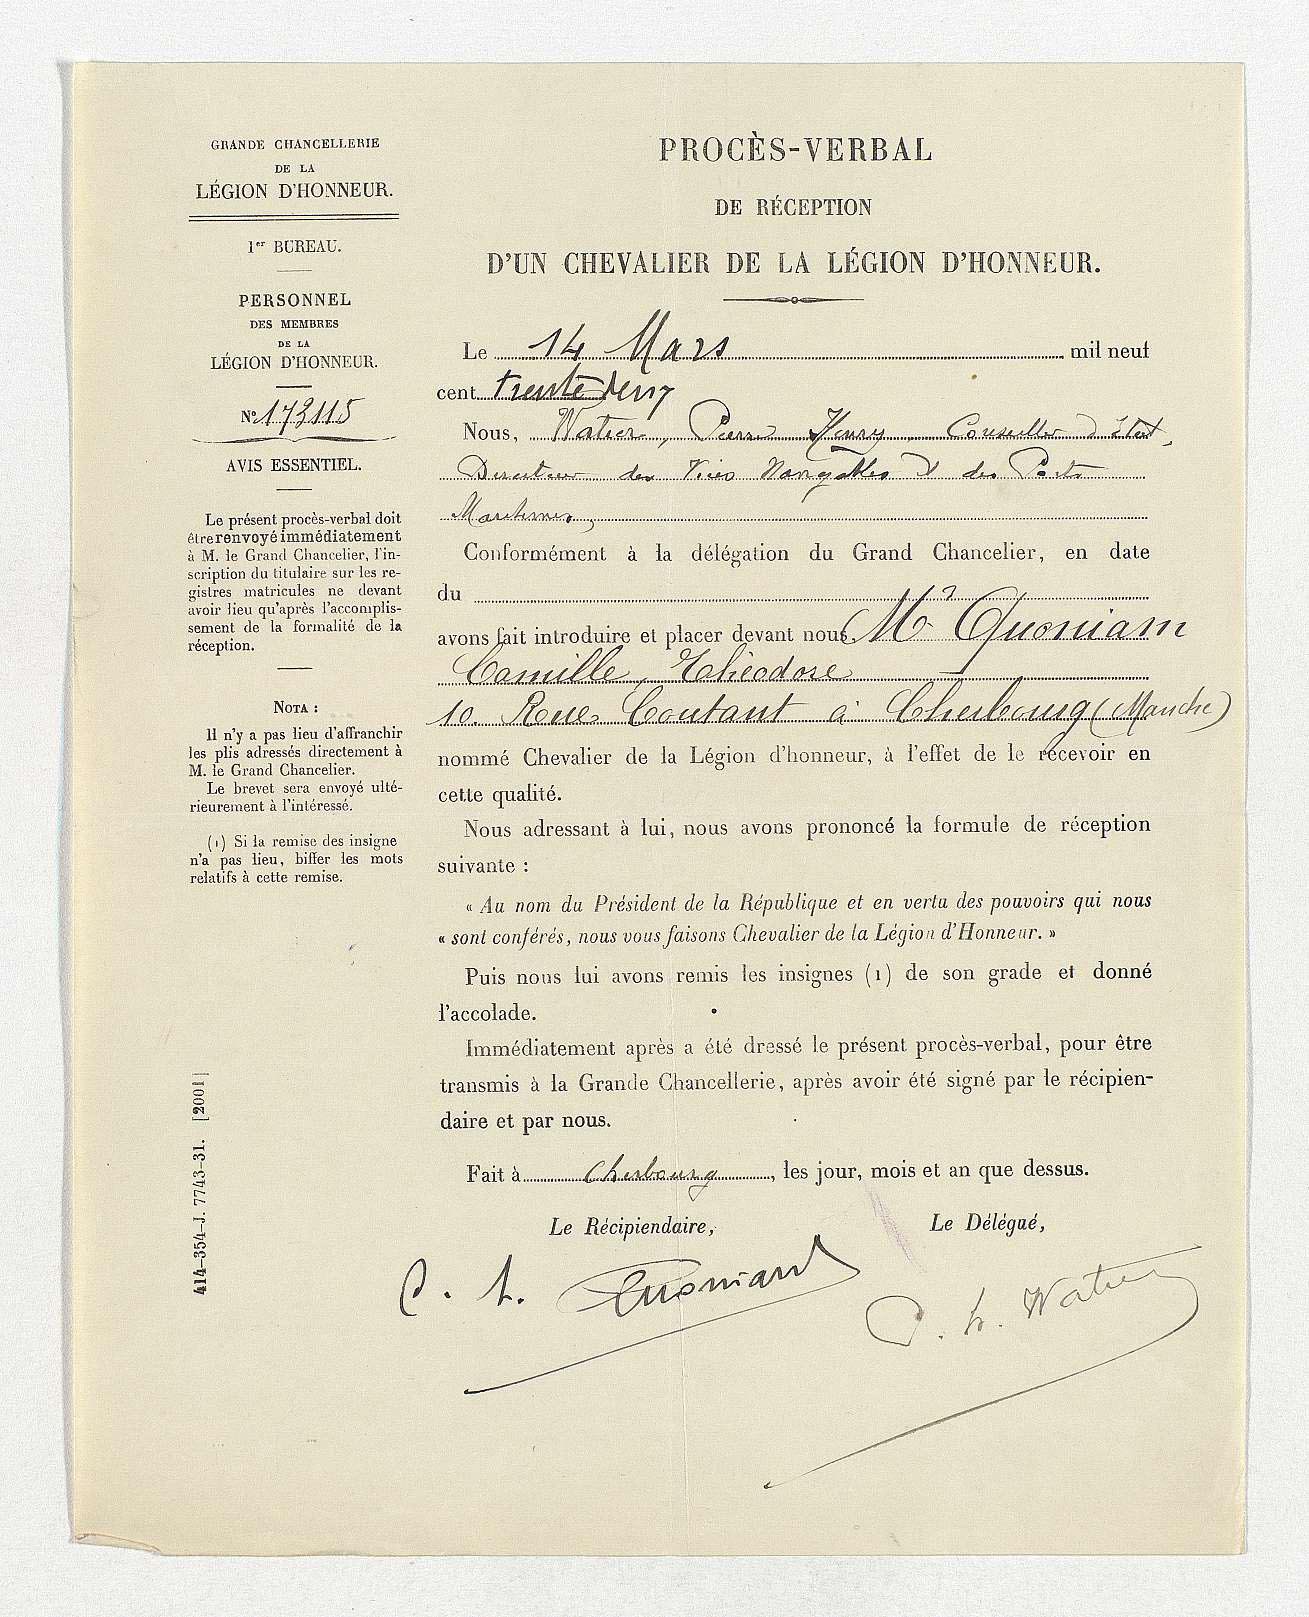 GRANDE CHANCELLERIE
DE LA
LÉGION D'HONNEUR.
1er BUREAU.
PERSONNEL
DES MEMBRES
DE LA
LÉGION D'HONNEUR.
N° 173115
AVIS ESSENTIEL.
Le présent procès-verbal doit
être renvoyé immédiatement
à M. le Grand Chancelier, l'in-
scription du titulaire sur les re-
gistres matricules ne devant
avoir lieu qu'après l'accomplis-
sement de la formalité de la
réception.
NOTA :
Il n'y a pas lieu d'affranchir
les plis adressés directement à
M. le Grand Chancelier.
Le brevet sera envoyé ulté-
rieurement à l'intéressé.
(1) Si la remise des insigne
n'a pas lieu, biffer les mots
relatifs à cette remise.
414-354-J. 7743-31. [2001]
PROCÈS-VERBAL
DE RÉCEPTION
D'UN CHEVALIER DE LA LÉGION D'HONNEUR.
Le 14 Mars mil neuf
cent trente deux
Nous, Watier, Pierre Henry Conseiller d'Etat,
Directeur des Voies Navigables & des Ports
Maritimes,
Conformément à la délégation du Grand Chancelier, en date
du
avons fait introduire et placer devant nous, Mr Quoniam
Camille, Théodore
10 Rue Coutant à Cherbourg (Manche)
nommé Chevalier de la Légion d'honneur, à l'effet de le recevoir en
cette qualité.
Nous adressant à lui, nous avons prononcé la formule de réception
suivante :
« Au nom du Président de la République et en vertu des pouvoirs qui nous
« sont conférés, nous vous faisons Chevalier de la Légion d'Honneur. »
Puis nous lui avons remis les insignes (1) de son grade et donné
l'accolade.
Immédiatement après a été dressé le présent procès-verbal, pour être
transmis à la Grande Chancellerie, après avoir été signé par le récipien-
daire et par nous.
Fait à Cherbourg, les jour, mois et an que dessus.
Le Récipiendaire,
Le Délégué,
Quoniam
P. h. Watier